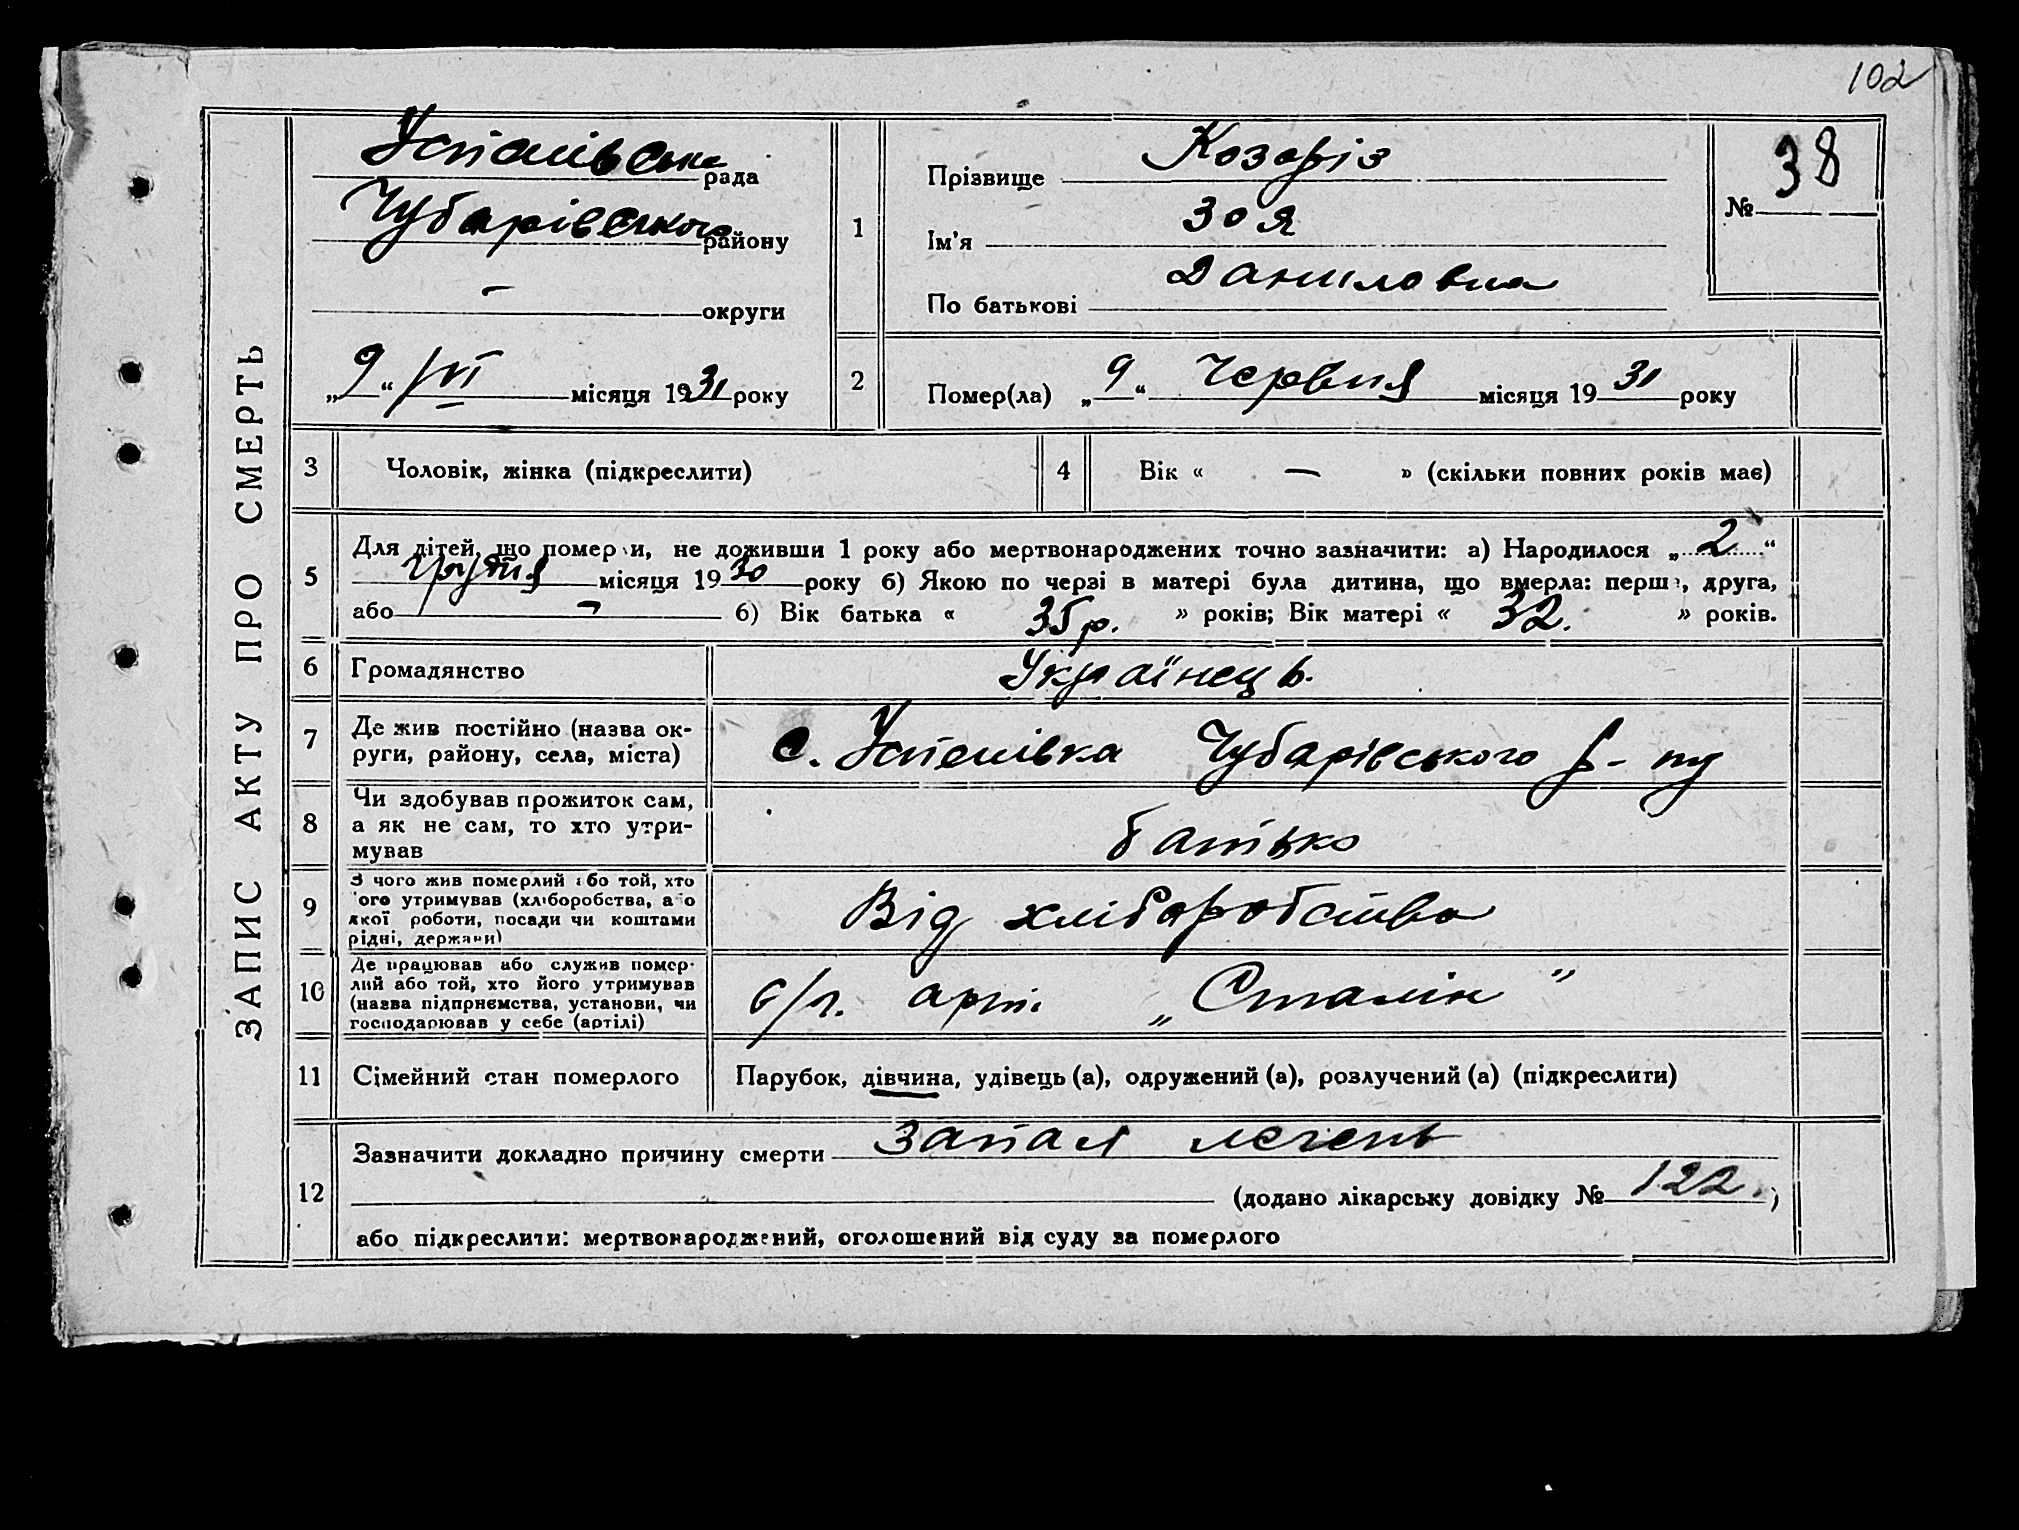 102
ЗАПИС АКТУ ПРО СМЕРТЬ
Успенівська рада
Чубарівського району
— округи
„9“ /VI місяця 1931 року
1
Прізвище Козоріз
Ім'я Зоя
По батькові Даниловна
№ 38
2
Помер(ла) „9“ Червня місяця 1931 року
3
Чоловік, жінка (підкреслити)
4
Вік « — » (скільки повних років має)
5
Для дітей, що померли, не доживши 1 року або мертвонароджених точно зазначити: а) Народилося „2“
грудня місяця 1930 року б) Якою по черзі в матері була дитина, що вмерла: перша, друга,
або — б) Вік батька « 35 р. » років; Вік матері « 32. » років.
6
Громадянство
Українець.
7
Де жив постійно (назва ок-
руги, району, села, міста)
с. Успенівка Чубарівського р-ну
8
Чи здобував прожиток сам,
а як не сам, то хто утри-
мував
батько
9
З чого жив померлий або той, хто
його утримував (хліборобства, або
якої роботи, посади чи коштами
рідні, держави)
Від хліборобства
10
Де працював або служив помер-
лий або той, хто його утримував
(назва підприємства, установи, чи
господарював у себе (артілі)
с/г. арт. „Сталін"
11
Сімейний стан померлого
Парубок, дівчина, удівець (а), одружений (а), розлучений (а) (підкреслити)
12
Зазначити докладно причину смерти запал легень
(додано лікарську довідку № 122.)
або підкреслити: мертвонароджений, оголошений від суду за померлого